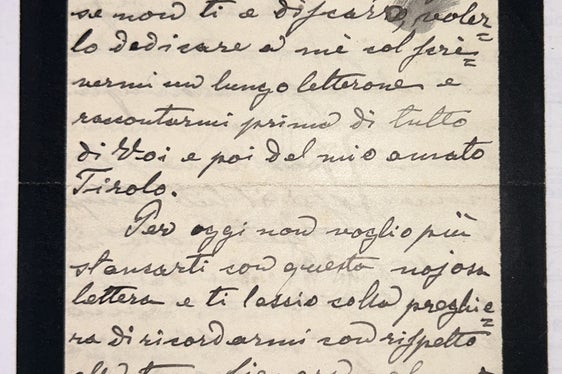 se non ti è discaro, voler=
lo dedicare a me col scri=
vermi un lungo letterone e
raccontarmi prima di tutto
di Voi e poi del mio amato
Tirolo.
Per oggi non voglio più
stansarti con questa nojosa
lettera e ti lassio colla preghie=
ra di ricordarmi con rispetto